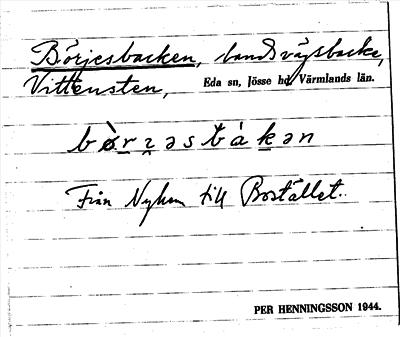 Börjesbacken, landsvägsbacke,
Vittensten, Eda sn, Jösse hd, Värmlands län.
bø̀rʒəsbákən
Från Nyhem till Bostället.
PER HENNINGSSON 1944.